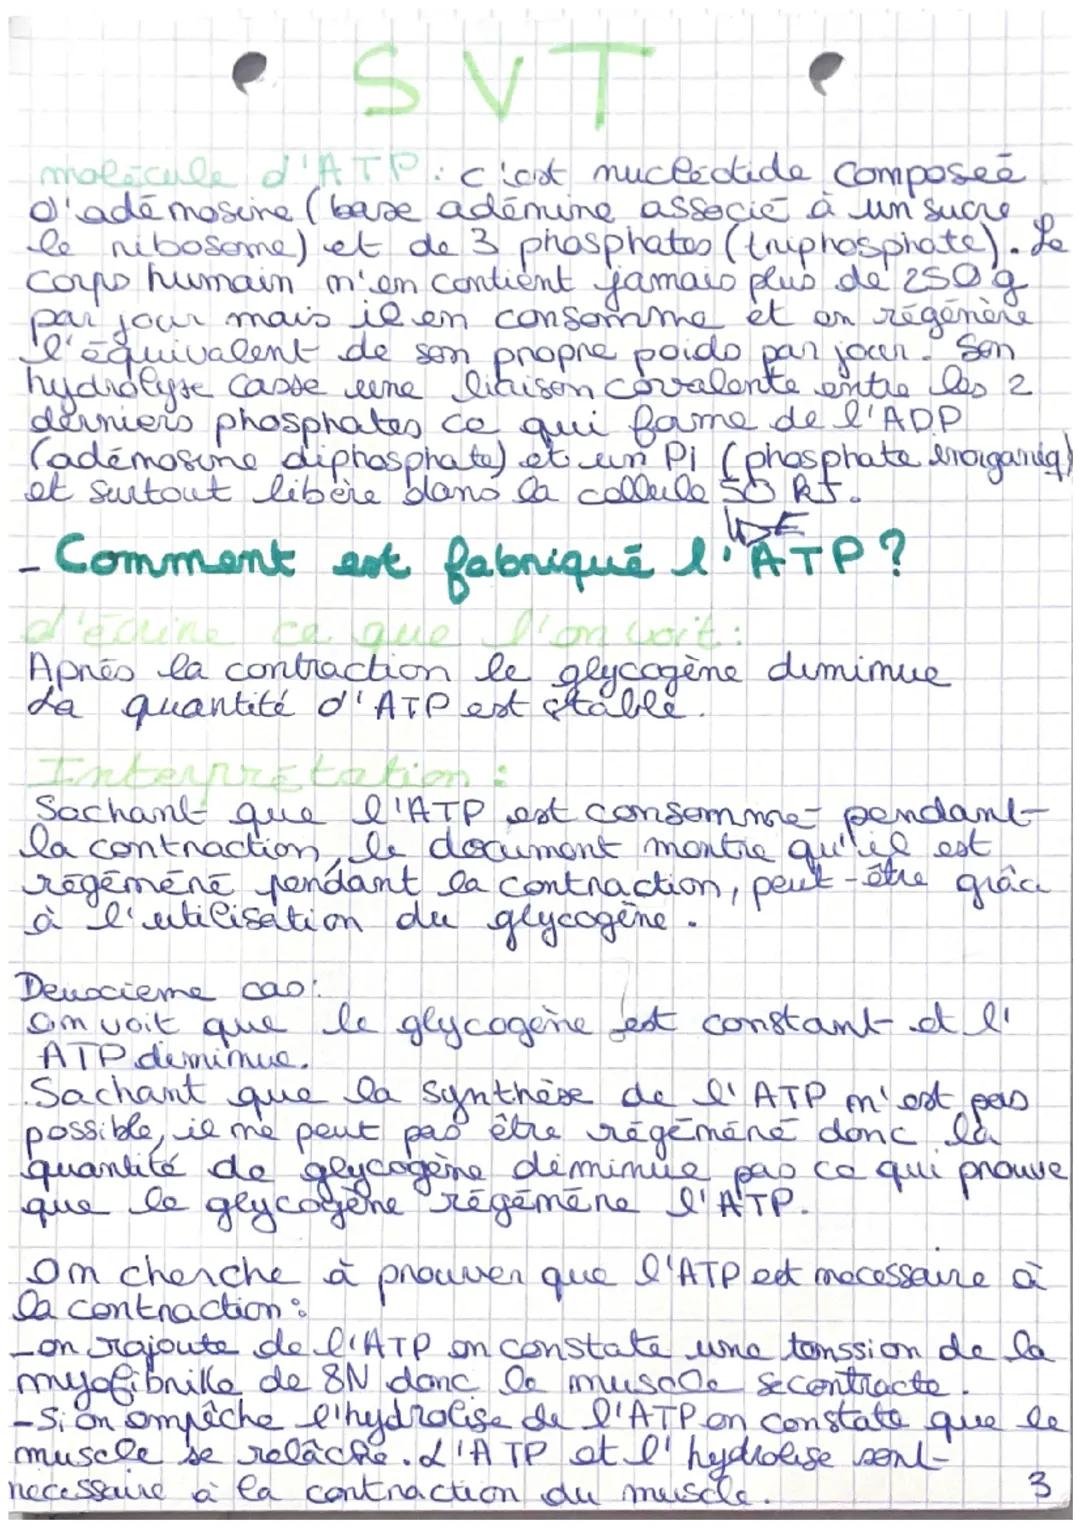 SVT
molécule d'ATP : c'est nucléotide composeé
d'adémosine (base adémine associé à un sucre
le ribosome) et de 3 phosphates (triphosphate). Le
corps humain n'en contient jamais plus de 250 g
par jour mais il en consomme et en régénère
l'équivalent de son propre poids par jour. Son
hydrolyse casse une liaison covalente entre les 2
derniers phosphates ce qui forme de l'ADP
(adémosine diphosphate) et un Pi (phosphate inorganiq)
et surtout libère dans la cellule 50 kJ.
- Comment est fabriqué l'ATP ?
d'écrire ce que l'on voit :
Après la contraction le glycogène diminue
La quantité d'ATP est stable.
Interprétation :
Sachant que l'ATP est consommé pendant
la contraction, le document montre qu'il est
régénéré pendant la contraction, peut-être grâce
à l'utilisation du glycogène.
Deuxieme cas :
on voit que le glycogène est constant et l'
ATP diminue.
Sachant que la synthèse de l'ATP n'est pas
possible, il ne peut pas être régénéré donc la
quantité de glycogène diminue pas ce qui prouve
que le glycogène régénère l'ATP.
On cherche à prouver que l'ATP est necessaire à
la contraction :
- on rajoute de l'ATP on constate une tenssion de la
myofibrille de 8N donc le muscle se contracte.
- Si on empêche l'hydrolise de l'ATP on constate que le
muscle se relâche. L'ATP et l'hydrolise sont
necessaire à la contraction du muscle.
3